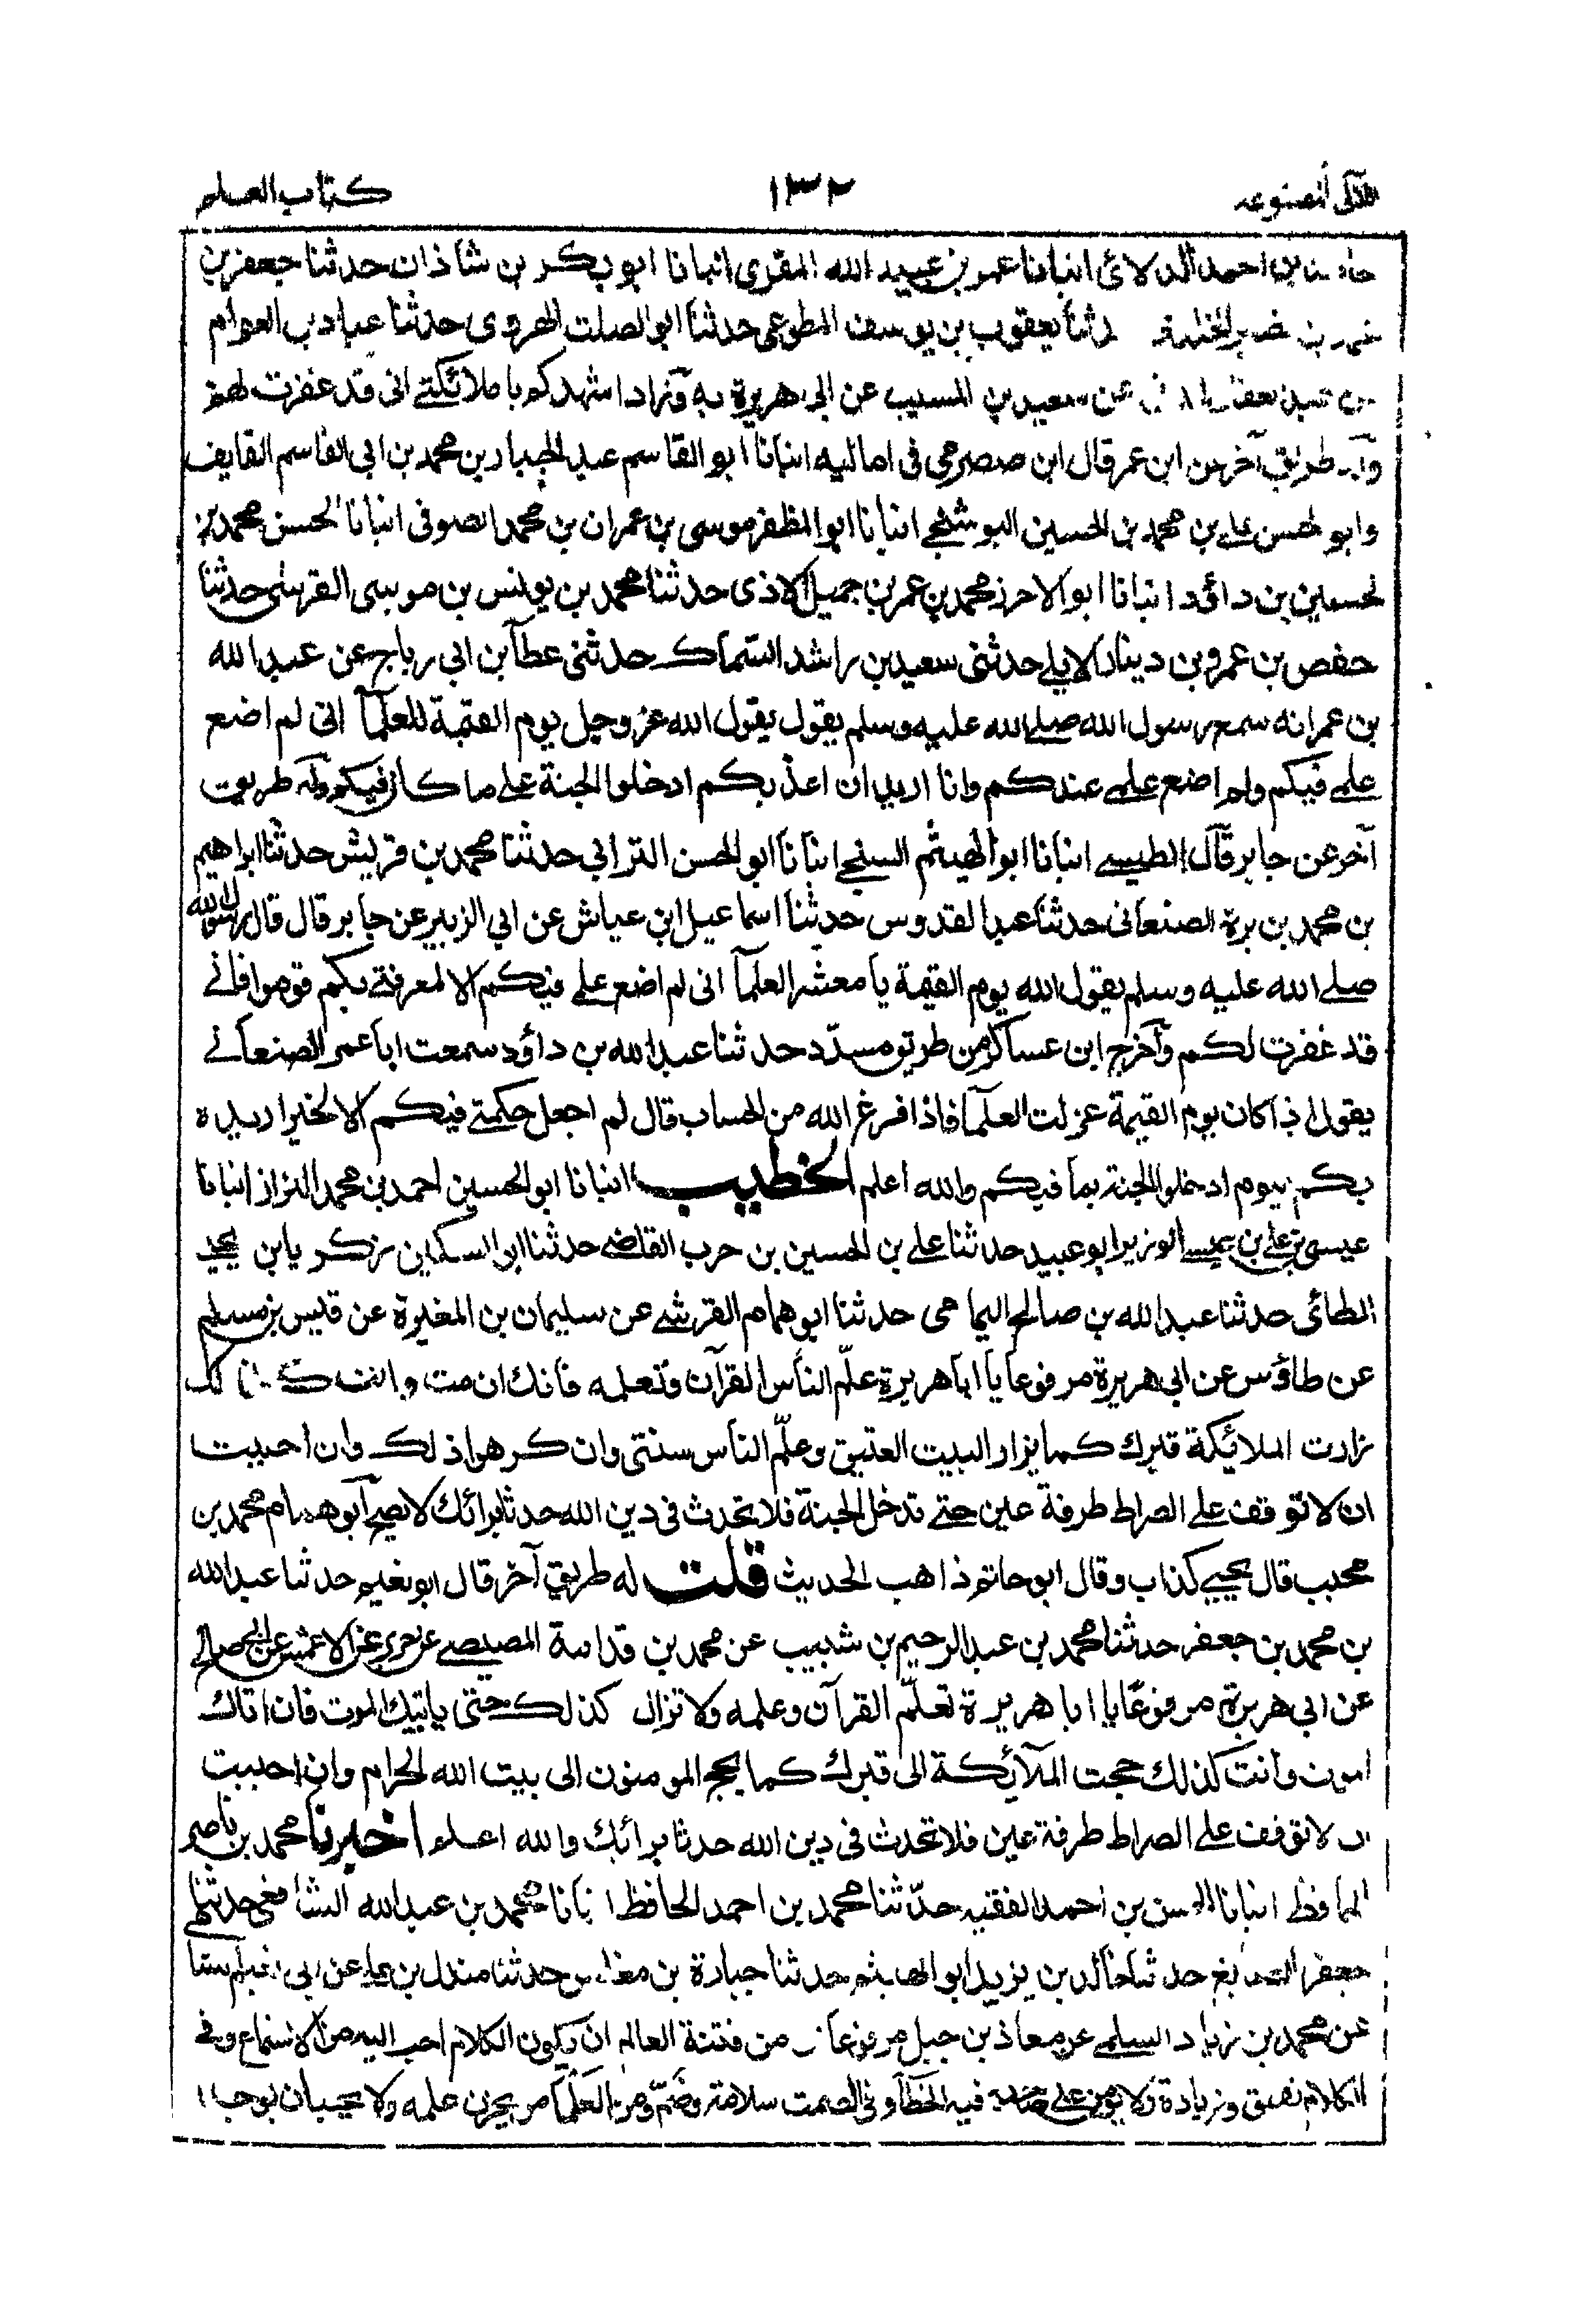 اللآلى المصنوعه ١٣٢ كتاب العلم
بن احمد الدلائى انبانا عمر بن عبيد الله المقرى انبانا ابو بكر بن شاذان حدثنا جعفر بن
يعقوب بن يوسف المطوعى حدثنا ابو الصلت الهروى حدثنا عباد بن العوام
عن سعيد بن المسيب عن ابى هريرة به وزاد اشهدكم يا ملائكتے انى قد غفرت لهم
طريق آخر عن ابن عمر قال ابن صصرى فى اماليه انبانا ابو القاسم عبد الجبار بن محمد بن ابى القاسم القايف
وابو لحسن علے بن محمد بن الحسين البوشنجے انبانا ابو المظفر موسى بن عمران بن محمد الصوفى انبانا الحسن محمد بن
لحسين بن داؤد انبانا ابو الاحرز محمد بن عمر بن جميل الاذدى حدثنا محمد بن يونس بن موسى القرشى حدثنا
حفص بن عمرو بن دينار الايلے حدثنى سعيد بن راشد السّماك حدثنى عطآ بن ابى رباح عن عبد الله
بن عمر انه سمع رسول الله صلے الله عليه وسلم يقول يقول الله عز وجل يوم القيمة للعلمآ انى لم اضع
علمے فيكم ولم اضع علمے عندكم وانا اريد ان اعذبكم ادخلوا الجنة علے ما كان فيكم وله طريق
آخر عن جابر قال الطيسے انبانا ابو الهيثم السنجے انبانا ابو الحسن الترابى حدثنا محمد بن قريش حدثنا ابراهيم
بن محمد بن برة الصنعانى حدثنا عبد القدوس حدثنا اسماعيل ابن عياش عن ابي الزبير عن جابر قال قال رسول الله
صلے الله عليه وسلم يقول الله يوم القيمة يا معشر العلمآ انى لم اضع علمے فيكم الا لمعرفتے بكم قوموا فانے
قد غفرت لكم وآخرج ابن عساكر من طريق مسدّد حدثنا عبد الله بن داؤد سمعت ابا عمر الصنعانے
يقول اذا كان يوم القيمة عزلت العلمآ فاذا فرغ الله من الحساب قال لم اجعل حكمتے فيكم الا لخير اريده
بكم اليوم ادخلوا الجنة بما فيكم والله اعلم الخطيب انبانا ابو الحسين احمد بن محمد البزاز انبانا
عيسى بن علے بن عيسے الوزير ابو عبيد حدثنا علے بن الحسين بن حرب القاضے حدثنا ابو السكين زكريا بن يحيے
الطائى حدثنا عبد الله بن صالح اليمامى حدثنا ابو همام القرشے عن سليمان بن المغيرة عن قيس بن مسلم
عن طاؤس عن ابى هريرة مرفوعا يا ابا هريرة علّم الناس القرآن وتعلمه فانك ان مت وانت كذلك
زارت الملائيكة قبرك كما يزار البيت العتيق وعلّم الناس سنتى وان كرهوا ذلك وان احببت
ان لا توقف على الصراط طرفة عين حتے تدخل الجنة فلا تحدث فى دين الله حدثا برائك لا يصح آبو همام محمد بن
محبب قال يحيے كذاب وقال ابو حاتم ذاهب الحديث قلت له طريق آخر قال ابو نعيم حدثنا عبد الله
بن محمد بن جعفر حدثنا محمد بن عبد الرحيم بن شبيب عن محمد بن قدامة المصيصے عن جرير عن الاعمش عن ابى صالح
عن ابى هريرة مرفوعًا يا ابا هريرة تعلّم القرآن وعلمه ولا تزال كذلك حتى ياتيك الموت فان اتاك
الموت وانت كذلك حجت الملآئكة الى قبرك كما يحج المومنون الى بيت الله الحرام وان احببت
ان لا توقف على الصراط طرفة عين فلا تحدث فى دين الله حدثا برائك والله اعلم اخبرنا محمد بن ناصر
الحافظ انبانا الحسن بن احمد الفقيه حدّثنا محمد بن احمد الحافظ انبانا محمد بن عبد الله الشافعى حدثنى
جعفر حدثنا خالد بن يزيد ابو الهيثم حدثنا جبارة بن مغلس حدثنا مندل بن علے عن ابى نعيم
عن محمد بن زياد السلمے عن معاذ بن جبل مرفوعا من فتنة العالم ان يكون الكلام احب اليه من الاستماع وفى
الكلام تنميق وزيادة ولا يؤمن على صاحبه فيه الخطآ وفى الصمت سلامة وغنم ومن العلمآ من يخزن علمه ولا يحب ان يوجد